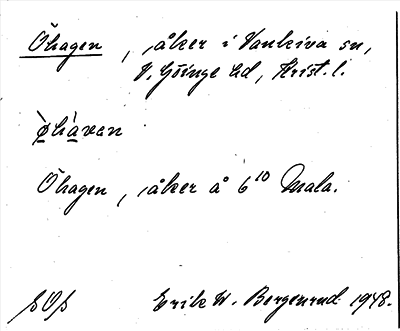 Öhagen, åker i Vankiva sn,
V. Göinge hd, Krist. l.
ø̀hàvan
Öhagen, åker å 6¹⁰ Mala.
Erik W. Bergenrud 1948.